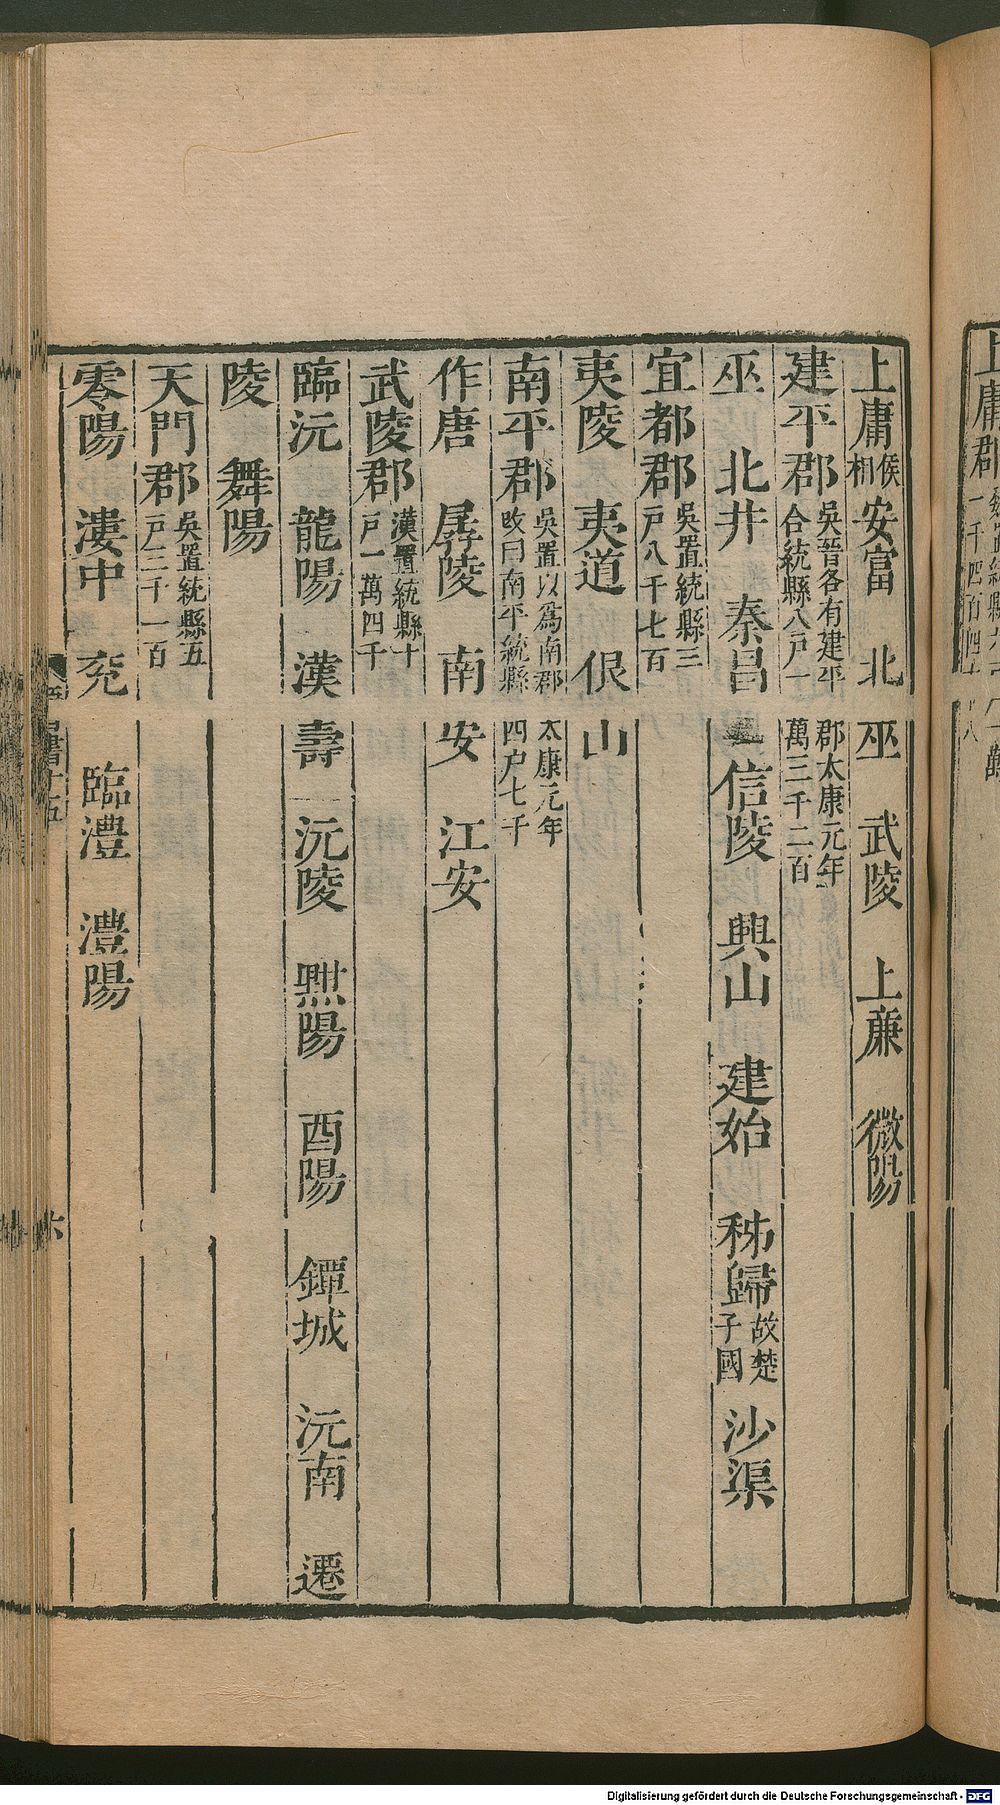 上庸侯相　安富　北巫　武陵　上庸　微陽
建平郡吳晉各有建平郡太康元年合統縣八戶一萬三千二百
巫　北井　秦昌　信陵　興山　建始　秭歸故楚子國　沙渠
宜都郡吳置統縣三戶八千七百
夷陵　夷道　佷山
南平郡吳置以爲南郡太康元年改曰南平統縣四戶七千
作唐　孱陵　南安　江安
武陵郡漢置統縣十戶一萬四千
臨沅　龍陽　漢壽　沅陵　黚陽　酉陽　鐔城　沅南　遷
陵　舞陽
天門郡吳置統縣五戶三千一百
零陽　漊中　充　臨澧　澧陽
六
Digitalisierung gefördert durch die Deutsche Forschungsgemeinschaft - DFG